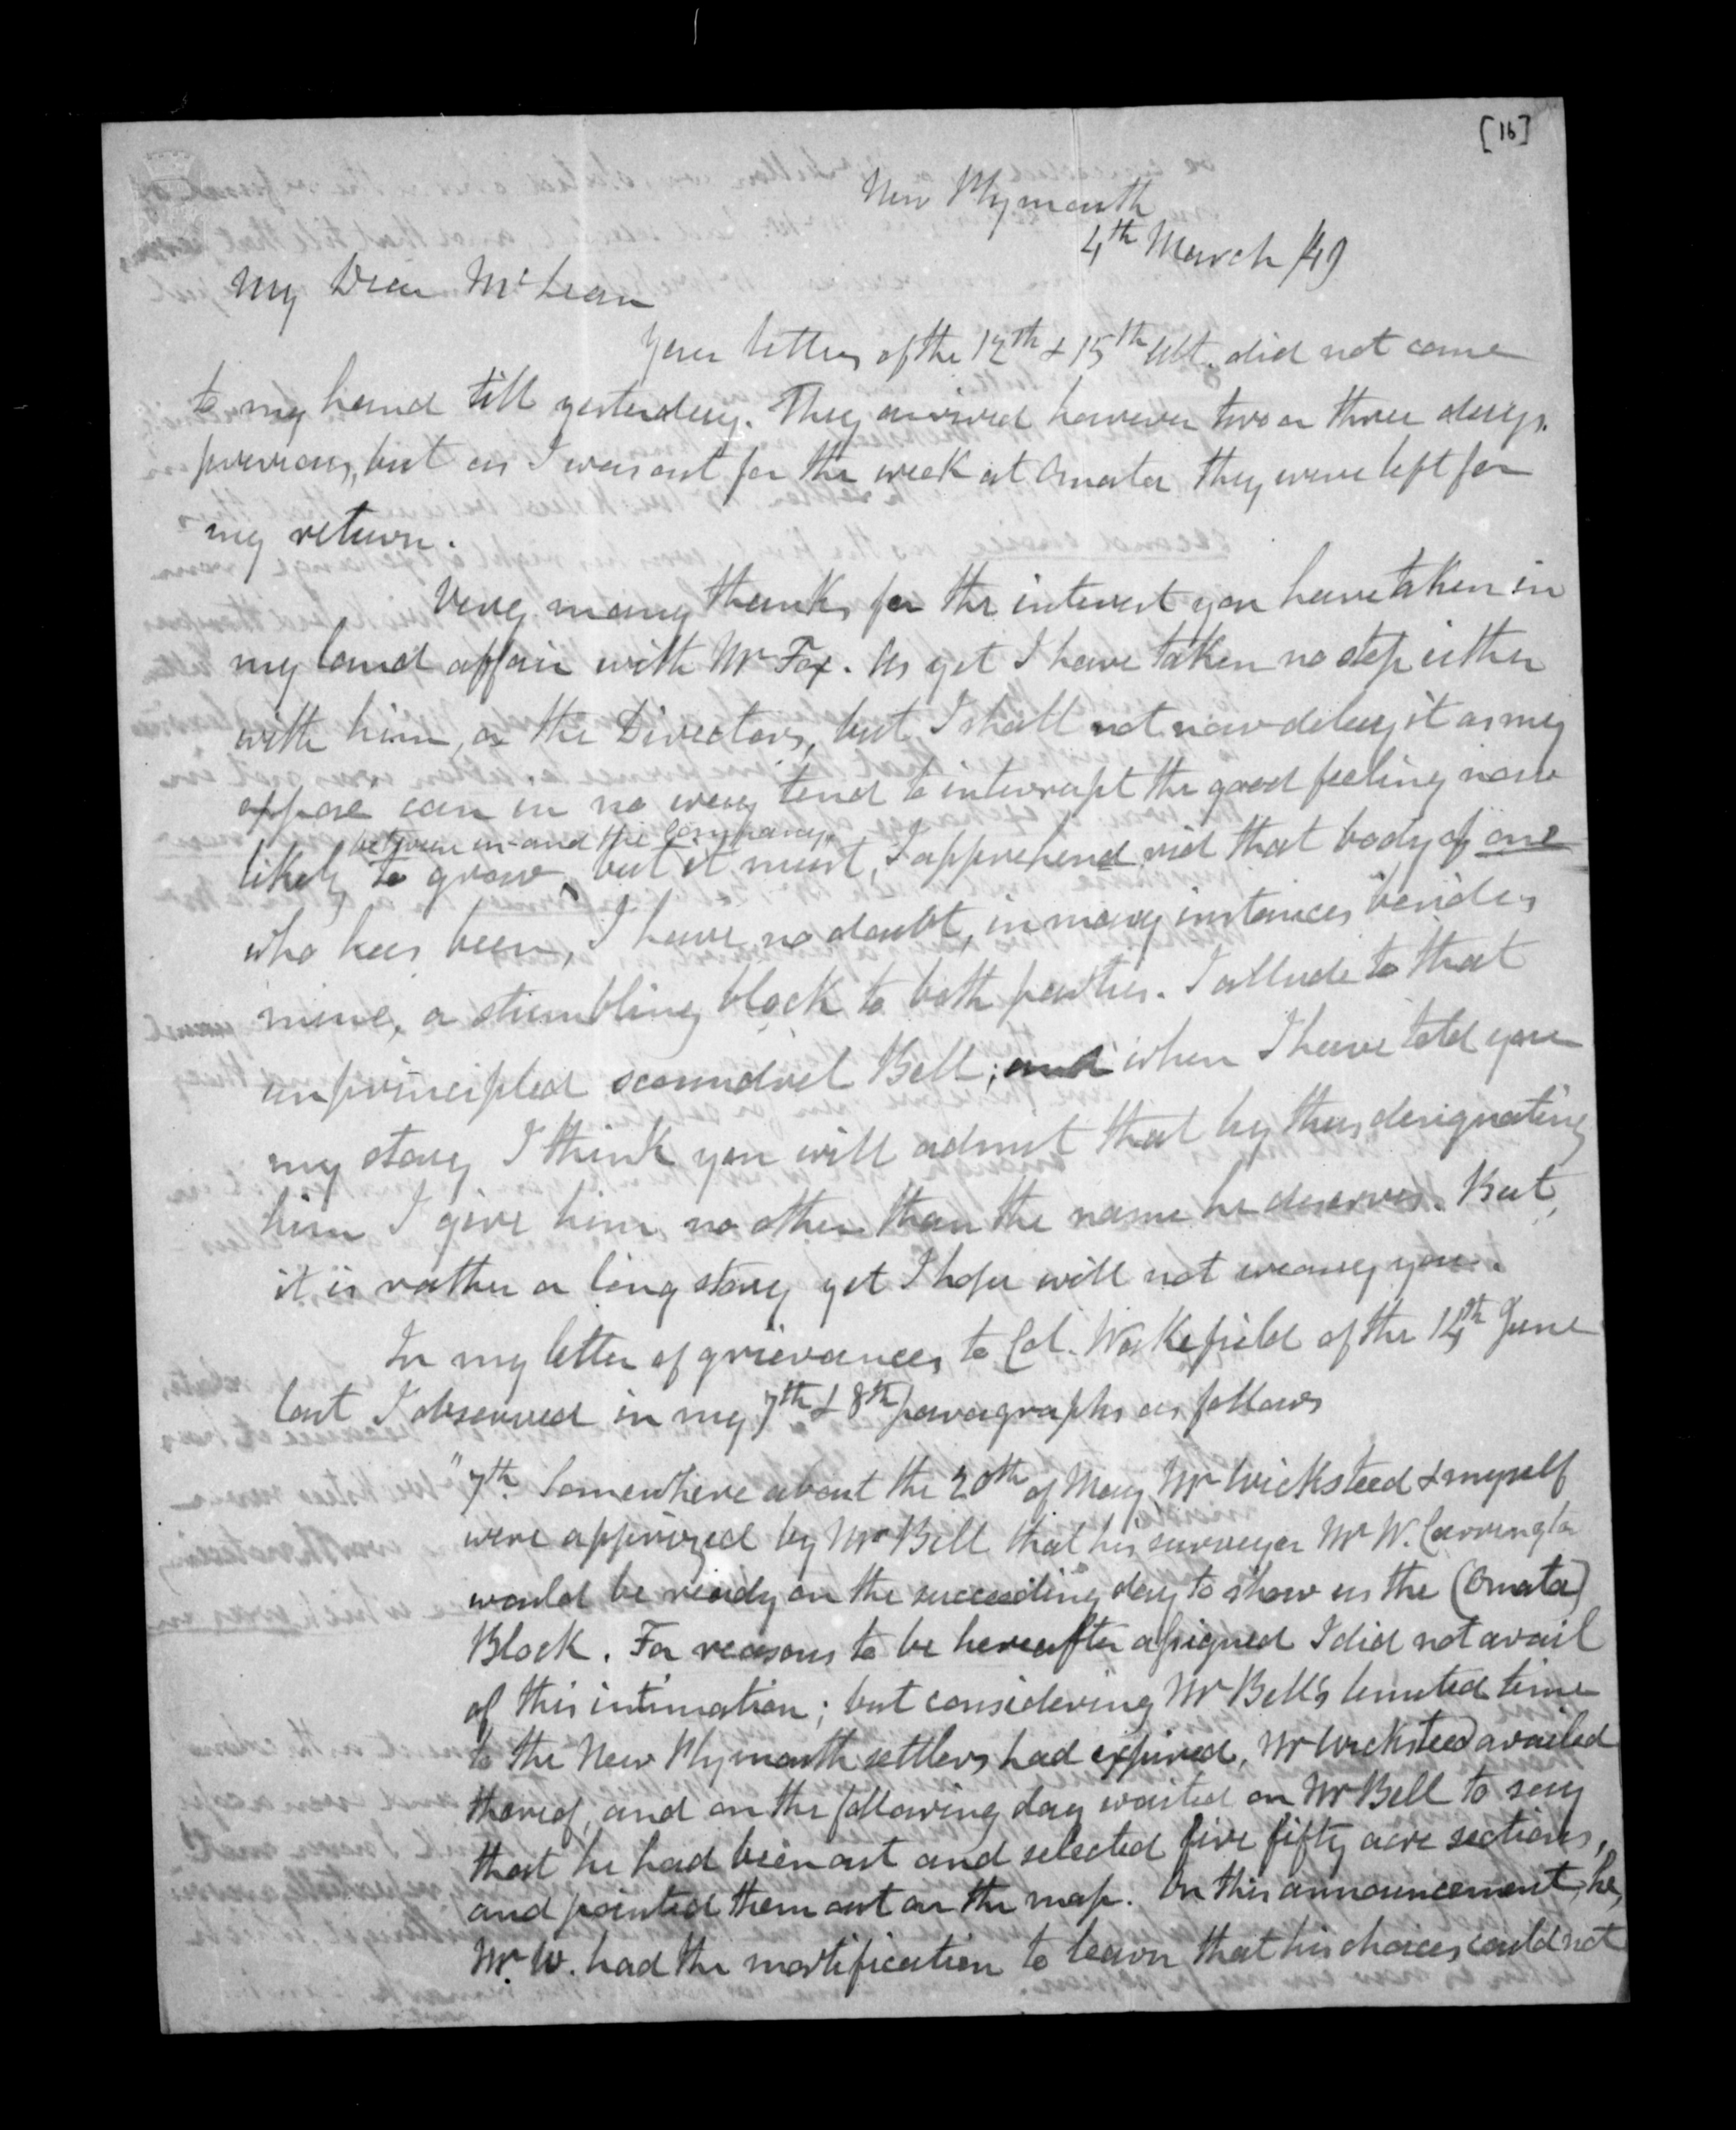 [16]
New Plymouth
4th March /49
My Dear McLean
Your letters of the 12th & 15th Ult. did not come
to my hand till yesterday. They arrived however two or three days
previous, but as I was out for the week at Omata they were left for
my return.
Very many thanks for the interest you have taken in
my land affair with Mr Fox. As yet I have taken no step either
with him, or the Directors, but I shall not now delay it as my
exposé can in no way tend to interrupt the good feeling now
likely to grow between us and the Company, but it must, I apprehend rid that body of one
who has been, I have no doubt, in many instances besides
mine, a stumbling block to both parties. I allude to that
unprincipled scoundrel Bell; and when I have told you
my story I think you will admit that by thus designating
him I give him no other than the name he deserves. But,
it is rather a long story yet I hope will not weary you.
In my letter of grievances to Col. Wakefield of the 14th June
last I observed in my 7th & 8th paragraphs as follows
"7th. Somewhere about the 20th of May Mr Wicksteed & myself
were apprized by Mr Bell that his surveyor Mr W. Carrington
would be ready on the succeeding day to show us the (Omata)
Block. For reasons to be hereafter assigned I did not avail
of this intimation; but considering Mr Bell's limited time
to the New Plymouth settlers had expired, Mr Wicksteed availed
thereof, and on the following day waited on Mr Bell to say
that he had been out and selected five fifty acre sections,
and pointed them out on the map. On this announcement, he,
Mr W. had the mortification to learn that his choices could not